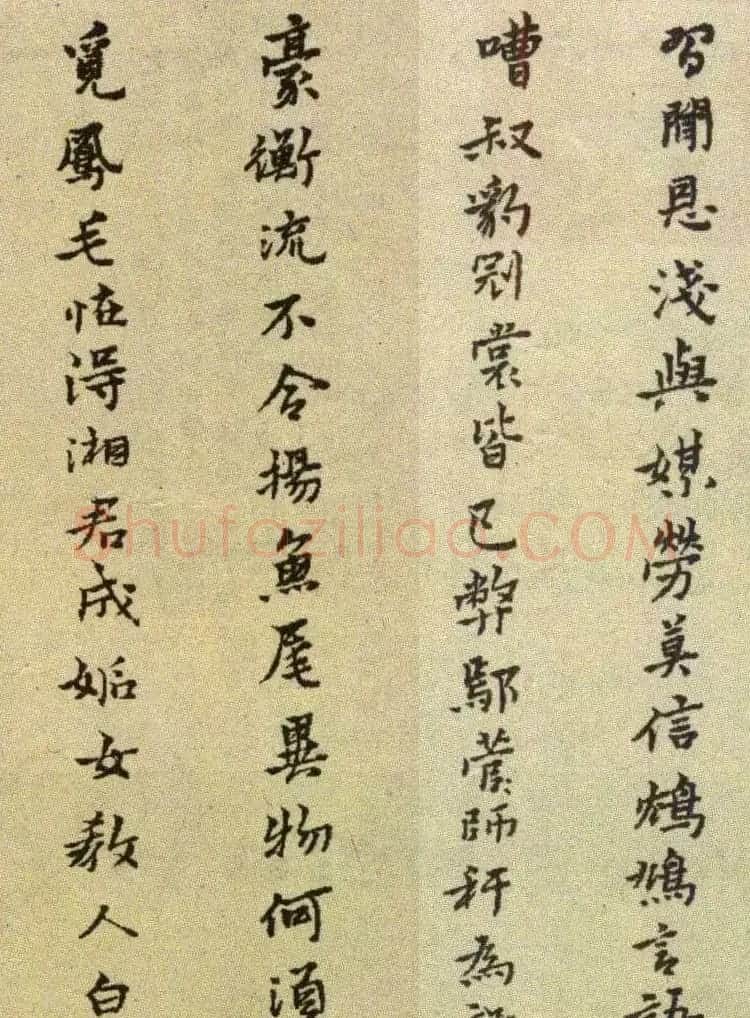 習聞恩淺與媒勞莫信言語
嘈叔豹裳皆已弊鄢師稈為
豪衡流不合揚魚尾異物何須
覓鳳毛恠得湘君成妬女教人白
Shufaziliao.COM